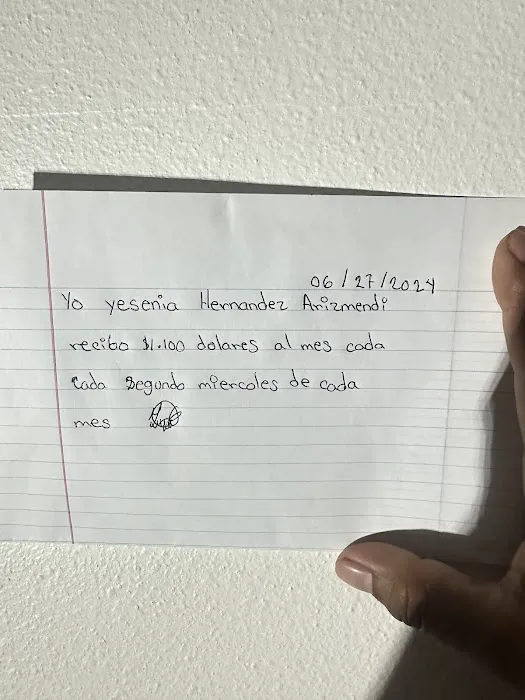 06/27/2024
Yo yesenia Hernandez Arizmendi
recibo $1.100 dolares al mes cada
cada segundo miercoles de cada
mes